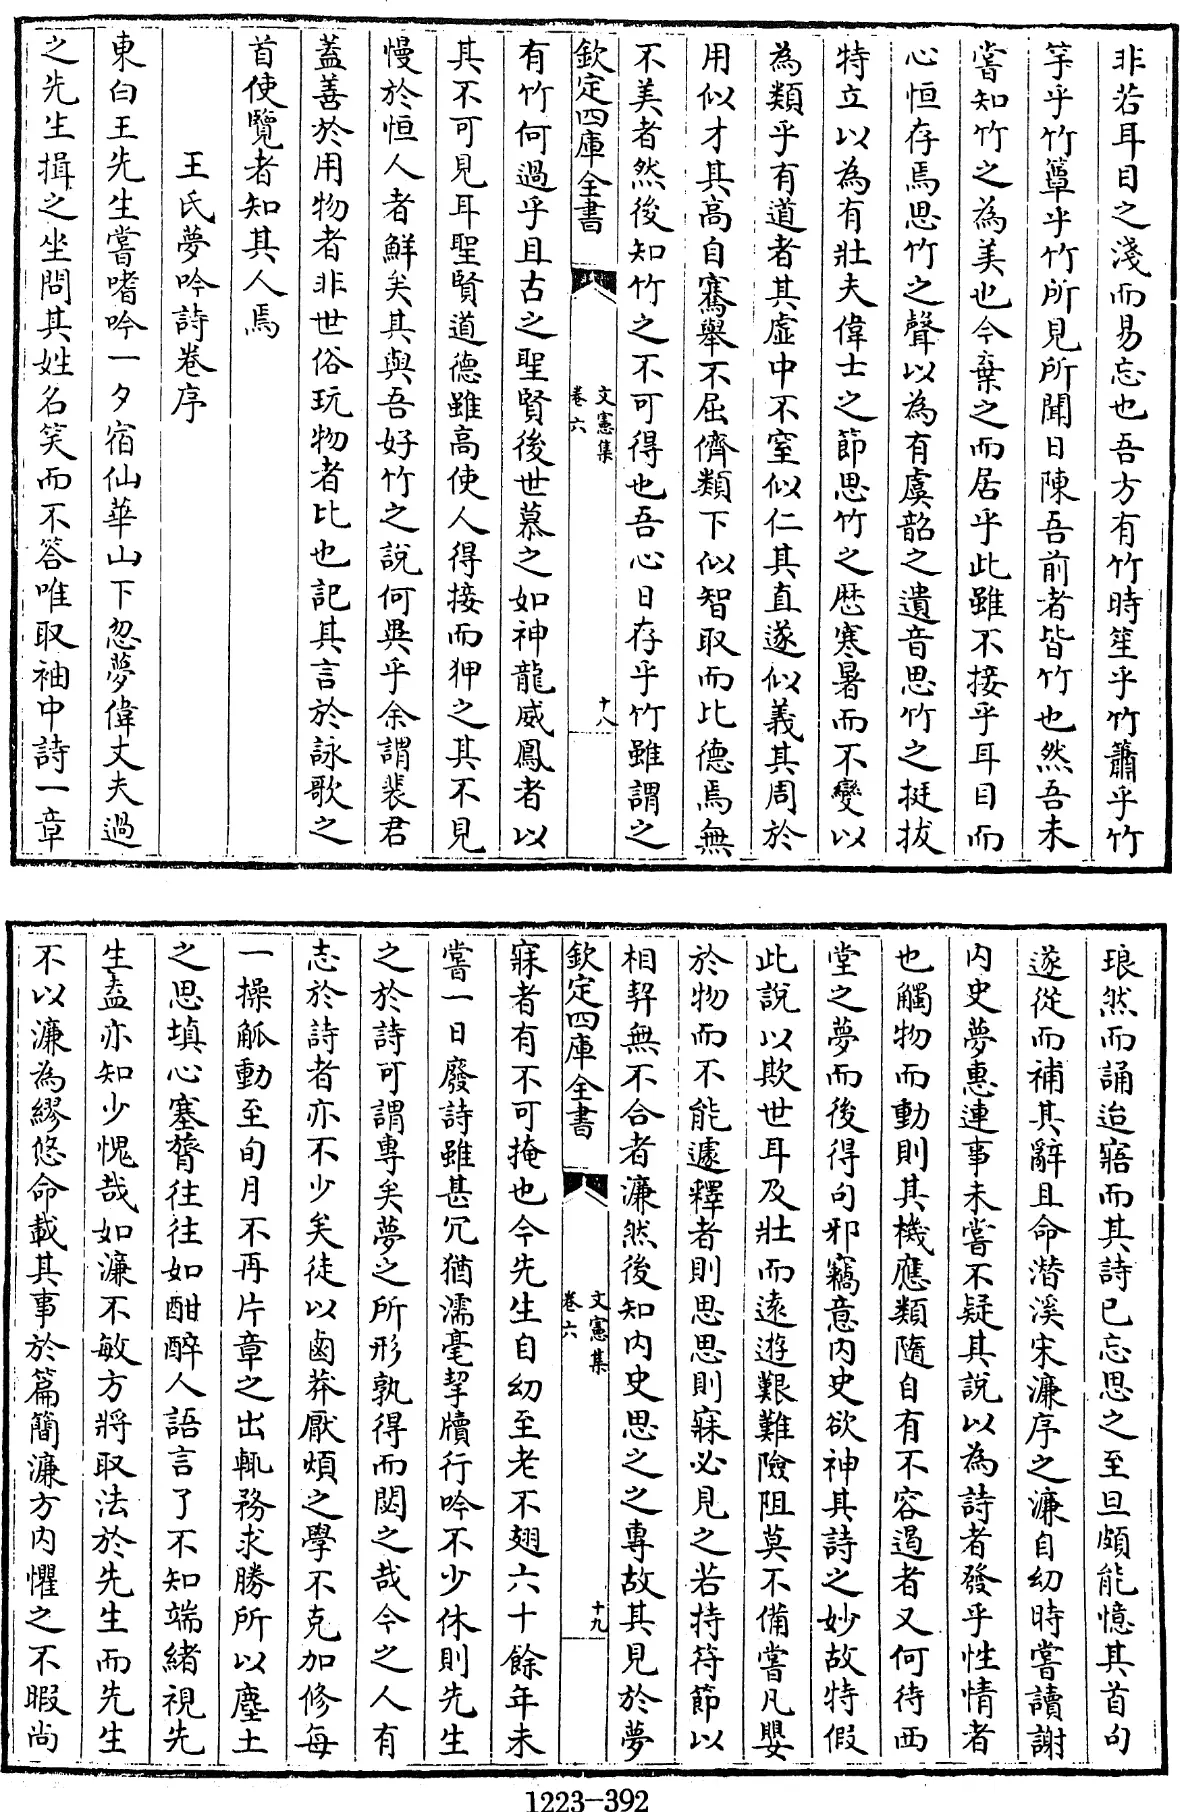 非若耳目之淺而易忘也吾方有竹時笙乎竹簫乎竹
竽乎竹簟乎竹所見所聞日陳吾前者皆竹也然吾未
嘗知竹之為美也今棄之而居乎此雖不接乎耳目而
心恒存焉思竹之聲以為有虞韶之遺音思竹之挺拔
特立以為有壯夫偉士之節思竹之歴寒暑而不變以
為類乎有道者其虛中不窒似仁其直遂似義其周於
用似才其高自騫舉不屈儕類下似智取而比德焉無
不美者然後知竹之不可得也吾心日存乎竹雖謂之
欽定四庫全書
文憲集
卷六
十八
有竹何過乎且古之聖賢後世慕之如神龍威鳳者以
其不可見耳聖賢道德雖高使人得接而狎之其不見
慢於恒人者鮮矣其與吾好竹之說何異乎余謂裴君
蓋善於用物者非世俗玩物者比也記其言於詠歌之
首使覽者知其人焉
王氏夢吟詩卷序
東白王先生嘗嗜吟一夕宿仙華山下忽夢偉丈夫過
之先生揖之坐問其姓名笑而不答唯取袖中詩一章
琅然而誦迨寤而其詩已忘思之至旦頗能憶其首句
遂從而補其辭且命潛溪宋濂序之濂自幼時嘗讀謝
内史夢惠連事未嘗不疑其說以為詩者發乎性情者
也觸物而動則其機應類隨自有不容遏者又何待西
堂之夢而後得句邪竊意内史欲神其詩之妙故特假
此說以欺世耳及壯而遠遊艱難險阻莫不備嘗凡嬰
於物而不能遽釋者則思思則寐必見之若持符節以
相契無不合者濂然後知内史思之之專故其見於夢
欽定四庫全書
文憲集
卷六
十九
寐者有不可掩也今先生自幼至老不翅六十餘年未
嘗一日廢詩雖甚冗猶濡毫挈牘行吟不少休則先生
之於詩可謂專矣夢之所形孰得而閟之哉今之人有
志於詩者亦不少矣徒以鹵莽厭煩之學不克加修每
一操觚動至旬月不再片章之出輒務求勝所以塵土
之思填心塞膂往往如酣醉人語言了不知端緒視先
生盍亦知少愧哉如濂不敏方將取法於先生而先生
不以濂為繆悠命載其事於篇簡濂方内懼之不暇尚
1223-392